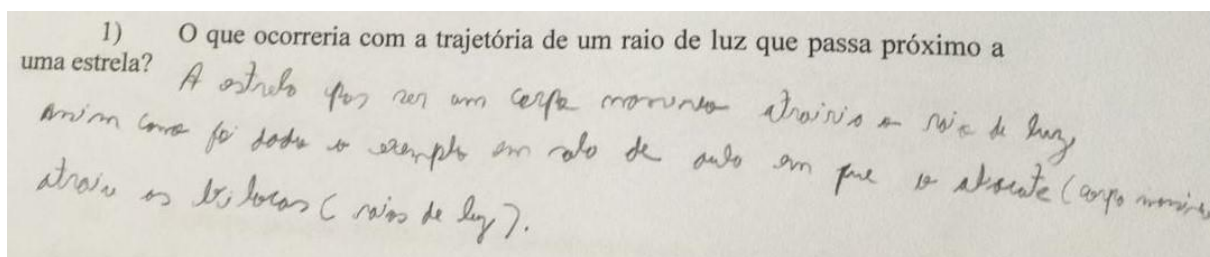 1) O que ocorreria com a trajetória de um raio de luz que passa próximo a
uma estrela?
A estrela por ser um corpo massivo atrairia o raio de luz,
assim como foi dado o exemplo em sala de aula em que o abacate (corpo massivo)
atraiu as bilocas (raios de luz).